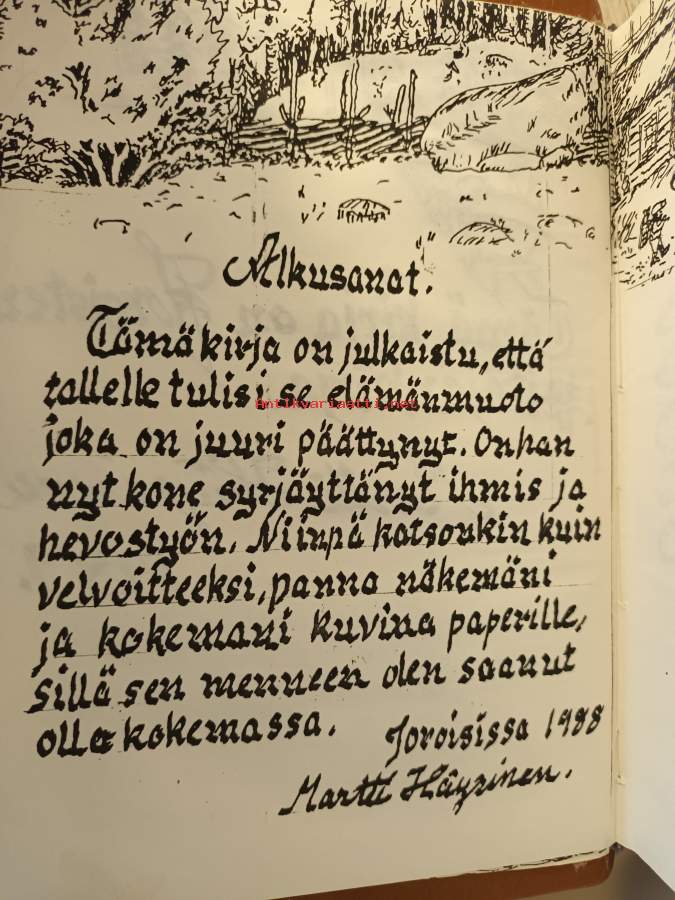 Alkusanat.
Tämä kirja on julkaistu, että
tallelle tulisi se elämänmuoto
antikvariaatti.net
joka on juuri päättynyt. Onhan
nyt kone syrjäyttänyt ihmis ja
hevostyön. Niinpä katsonkin kuin
velvoitteeksi, panna näkemäni
ja kokemani kuvina paperille,
sillä sen menneen olen saanut
olla kokemassa.
Joroisissa 1988
Martti Häyrinen.